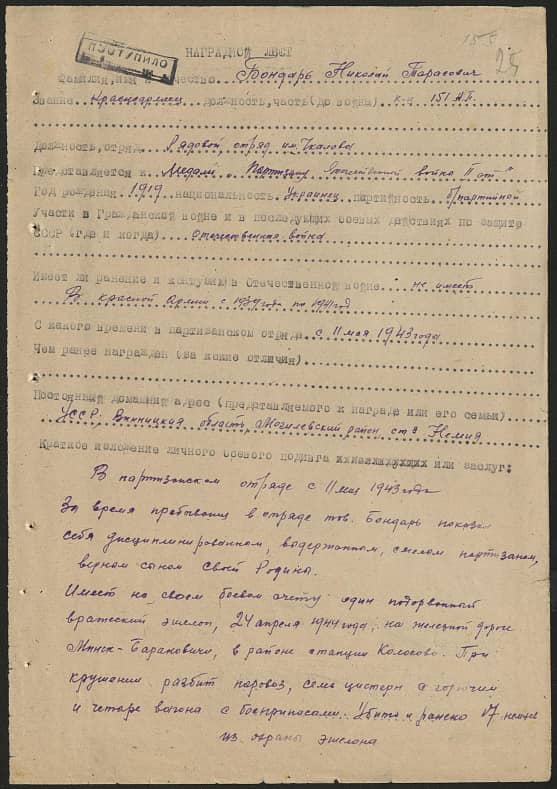 ПОСТУПИЛО
155
25
НАГРАДНОЙ ЛИСТ
Фамилия, имя и отчество Бондарь Николай Тарасович
Звание Красноармеец должность, часть (до войны) к-н 151 А.П.
Должность, отряд Рядовой отряд им. Чкалова
Представляется к Медали "Партизан Отечественной войны II ст."
Год рождения 1919 национальность Украинец партийность б/партийной
Участи в Гражданской войне и в последующих боевых действиях по защите
СССР (где и когда) Отечественная война
Имеет ли ранение и контузии в Отечественной войне не имеет
В красной армии с 1939 года по 1941 год
С какого времени в партизанском отряде с 11 мая 1943 года
Чем ранее награжден (за какие отличия)
Постоянный домашний адрес (представляемого к награде или его семьи)
УССР. Винницкая область, Могилевский район ст. Немия
Краткое изложение личного боевого подвига или заслуг:
В партизанском отряде с 11 мая 1943 года
За время пребывания в отряде тов. Бондарь показал
себя дисциплинированном, выдержанном, смелом партизаном,
верном сыном своей Родины.
Имеет на своем боевом счету один подорванный
вражеский эшелон, 24 апреля 1944 года, на железной дороге
Минск-Барановичи, в районе станции Колосово. При
крушении разбит паровоз, семь цистерн с горючим
и четыре вагона с боеприпасами. Убито и ранено 17 немцев
из охраны эшелона